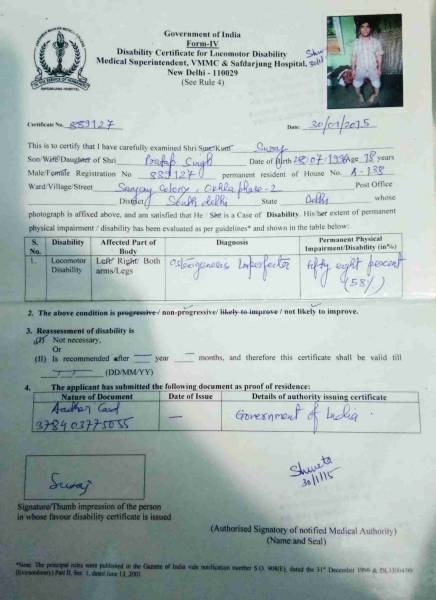 Government of India
Form-IV
Disability Certificate for Locomotor Disability
Medical Superintendent, VMMC & Safdarjung Hospital,
New Delhi - 110029
(See Rule 4)
Certificate No. 889127 Date: 30/01/2015
This is to certify that I have carefully examined Shri Smt Kum Suraj
Son Wife Daughter of Shri Pratap Singh Date of Birth 28/07/1996 Age 18 years
Male/Female Registration No 889127 permanent resident of House No. A-138
Ward/Village/Street Sanjay Colony, Okhla phase-2 Post Office
District South delhi State Delhi whose
photograph is affixed above, and am satisfied that He She is a Case of Disability. His/her extent of permanent
physical impairment / disability has been evaluated as per guidelines* and shown in the below:
S. No. Disability Affected Part of Body Diagnosis Permanent Physical Impairment/Disability (in%)
1. Locomotor Disability Left/ Right/ Both arms/Legs Osteogenesis Imperfecta fifty eight percent (58%)
2. The above condition is progressive/ non-progressive/ likely to improve / not likely to improve.
3. Reassessment of disability is
(I) Not necessary,
Or
(II) Is recommended after year months, and therefore this certificate shall be valid till
(DD/MM/YY)
4. The applicant has submitted the following document as proof of residence:
Nature of Document Date of Issue Details of authority issuing certificate
Aadhar Card 378403775055 — Government of India.
Suraj
Shweta
30/1/15
Signature/Thumb impression of the person
in whose favour disability certificate is issued
(Authorised Signatory of notified Medical Authority)
(Name and Seal)
*Note: The principal rules were published in the Gazette of India vide notification number S.O. 908(E), dated the 31st December 1996 &
(Extraordinary) Part II, Sec. 1, dated June 13, 2001